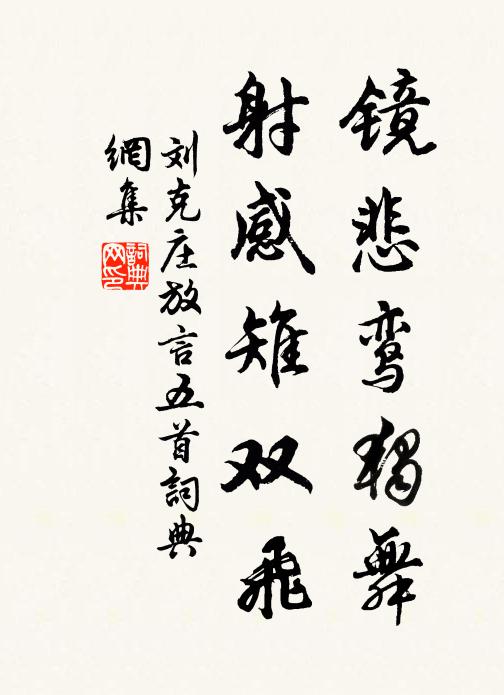 镜悲鸾独舞
射感雉双飛
刘克庄放言五首詞典
網集
詞典
网印